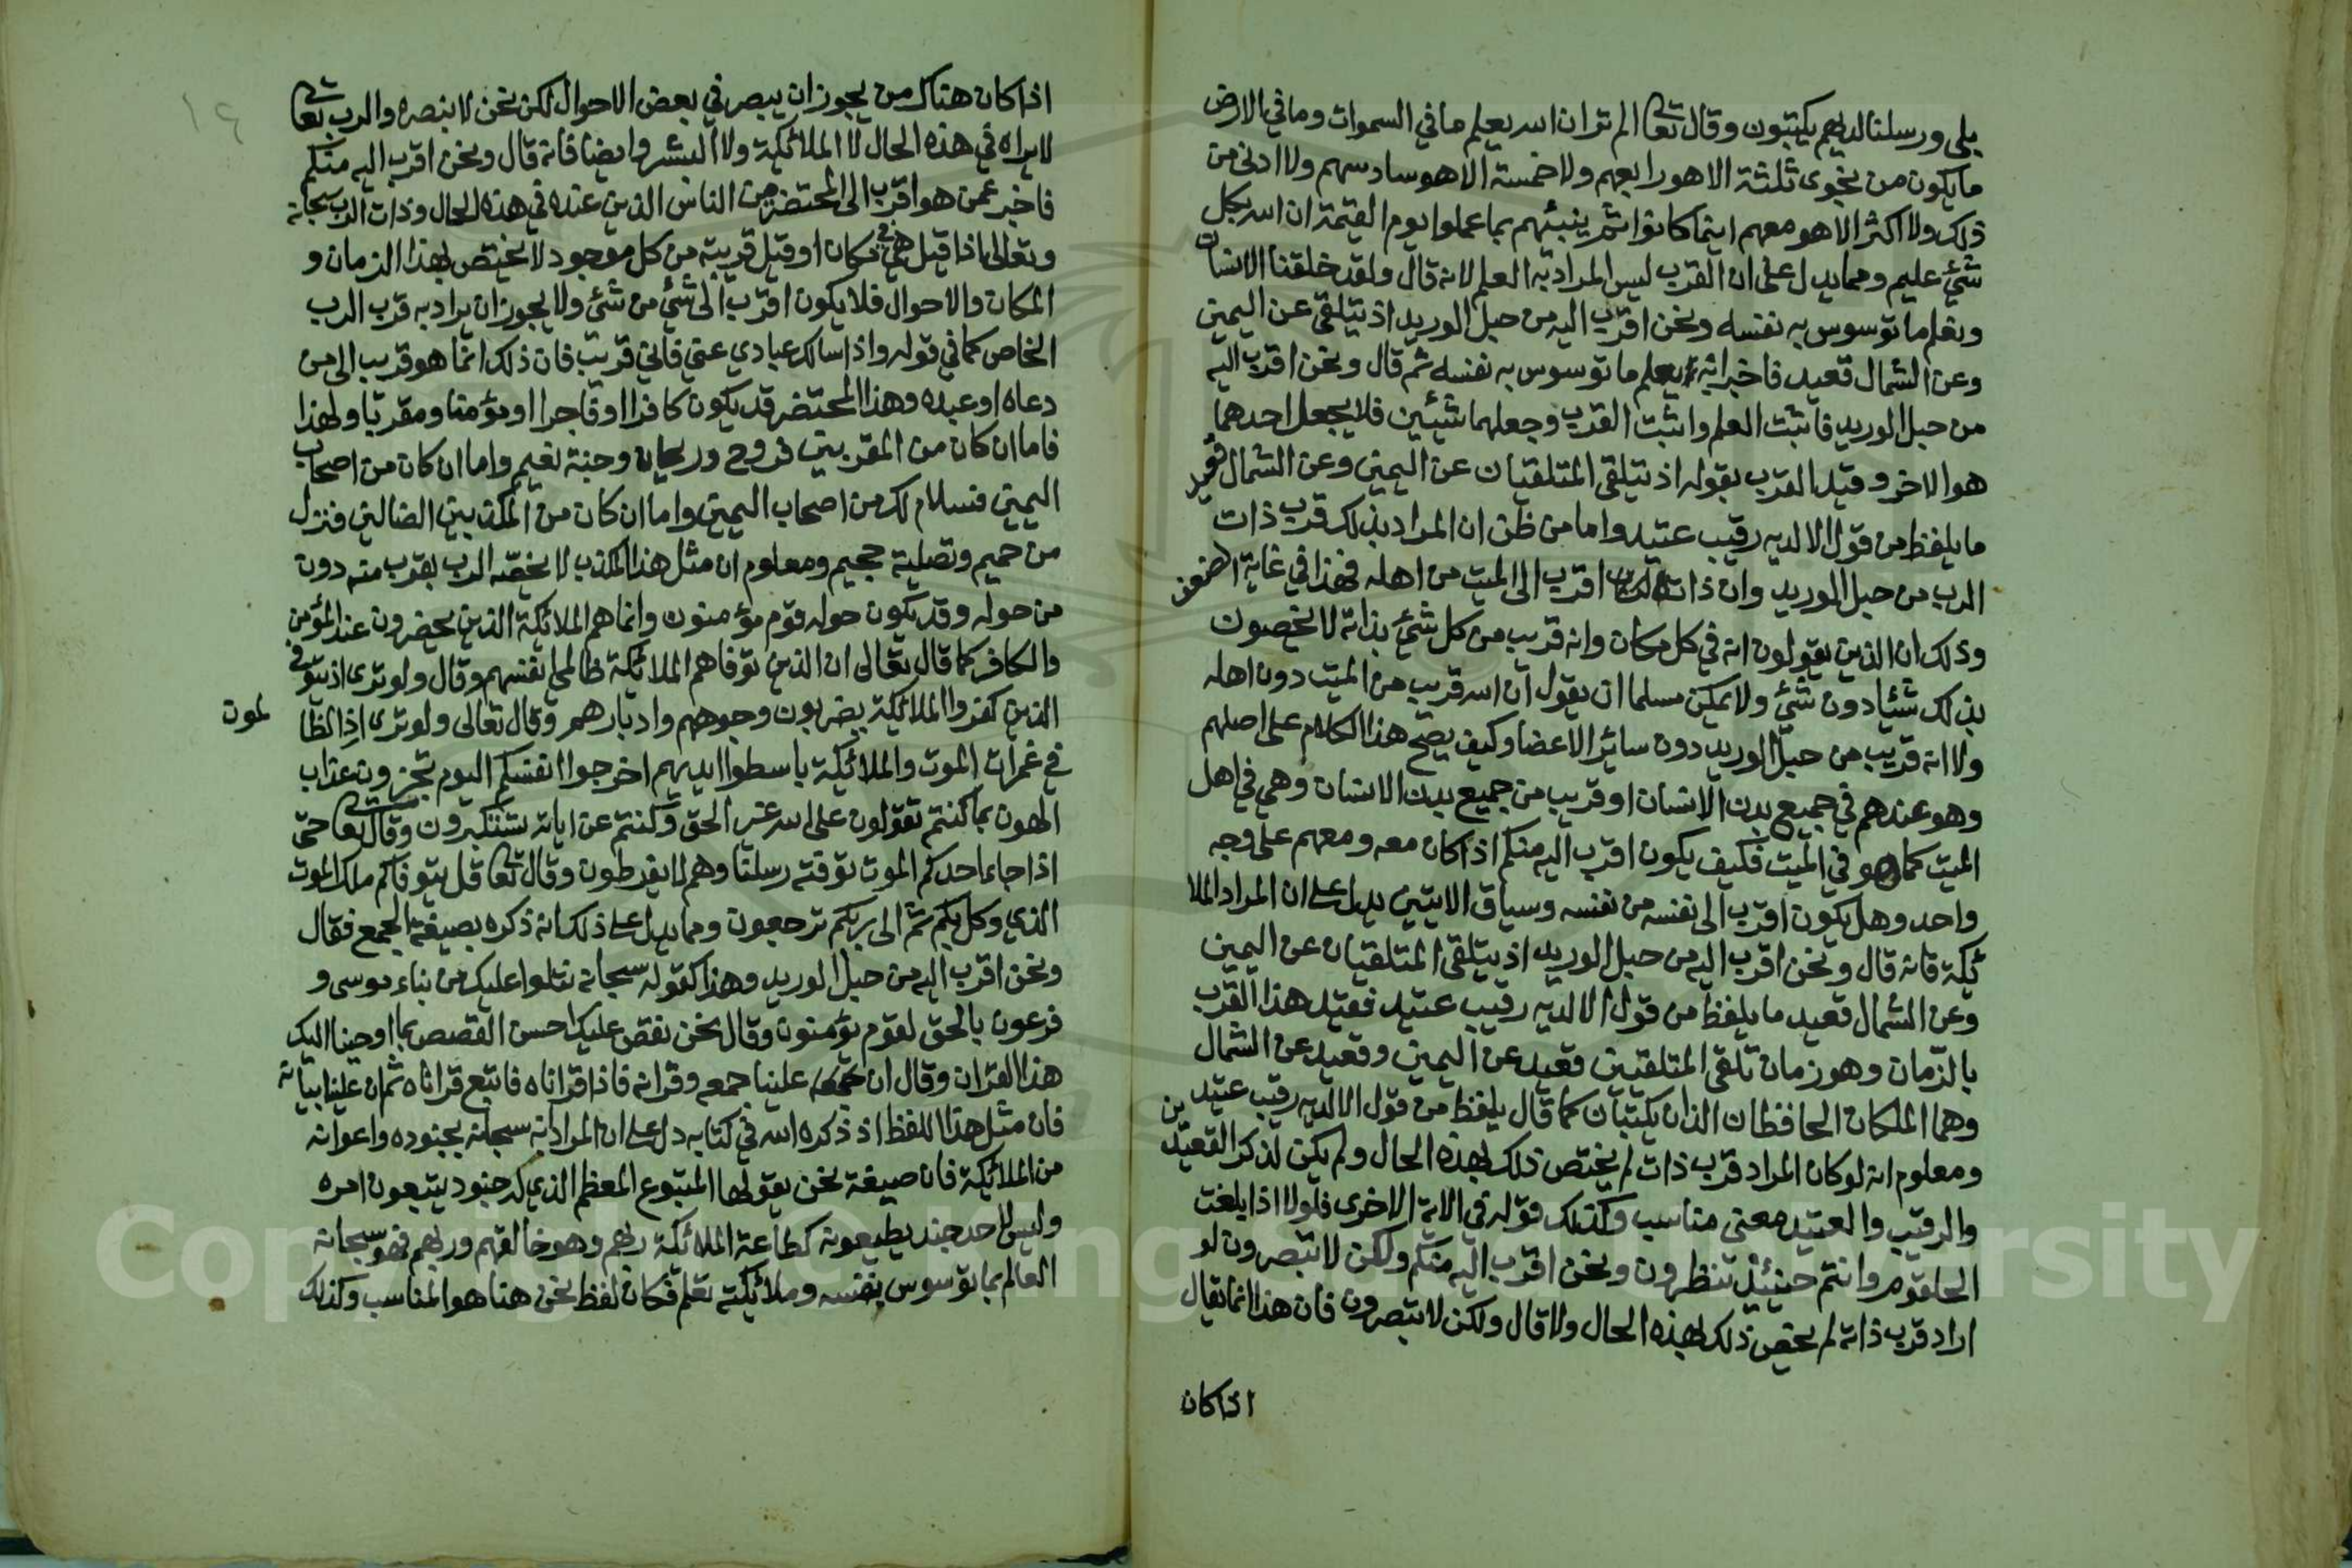 بلى ورسلنا لديهم يكتبون وقال تعا الم تر ان الله يعلم ما في السموات وما في الارض
ما يكون من نجوى ثلثة الا هو رابعهم ولا خمسة الا هو سادسهم ولا ادنى من
ذلك ولا اكثر الا هو معهم اينما كانوا ثم ينبئهم بما عملوا يوم القيمة ان الله بكل
شيء عليم ومما يدل على ان القرب ليس المراد به العلم لانه قال ولقد خلقنا الانسان
ونعلم ما توسوس به نفسه ونحن اقرب اليه من حبل الوريد اذ يتلقى عن اليمين
وعن الشمال قعيد فاخبر انه يعلم ما توسوس به نفسه ثم قال ونحن اقرب اليه
من حبل الوريد فاثبت العلم واثبت القرب وجعلهما شيئين فلا يجعل احدهما
هو الاخر وقيد القرب بقوله اذ يتلقى المتلقيان عن اليمين وعن الشمال قعيد
ما يلفظ من قول الا لديه رقيب عتيد واما من ظن ان المراد بذلك قرب ذات
الرب من حبل الوريد وان ذات الرب اقرب الى الميت من اهله فهذا في غاية الضعف
وذلك ان الذين يقولون انه في كل مكان وانه قريب من كل شيء بذاته لا يخصون
بذلك شيئا دون شيء ولا يمكن مسلما ان يقول ان الله قريب من الميت دون اهله
ولا انه قريب من حبل الوريد دون سائر الاعضا وكيف يصح هذا الكلام على اصلهم
وهو عندهم في جميع بدن الانسان او قريب من جميع بدن الانسان وهي في اهل
الميت كما هو في الميت فكيف يكون اقرب اليه منكم اذا كان معه ومعهم على وجه
واحد وهل يكون اقرب الى نفسه من نفسه وسياق الايتين يدل على ان المراد الملا
ئكة فانه قال ونحن اقرب اليه من حبل الوريد اذ يتلقى المتلقيان عن اليمين
وعن الشمال قعيد ما يلفظ من قول الا لديه رقيب عتيد فقيد هذا القرب
بالزمان وهو زمان تلقى المتلقيين قعيد عن اليمين وقعيد عن الشمال
وهما الملكان الحافظان الذان يكتبان كما قال يلفظ من قول الا لديه رقيب عتيد
ومعلوم انه لو كان المراد قرب ذات لم يختص ذلك بهذه الحال ولم يكن لذكر القعيدين
والرقيب والعتيد معنى مناسب وكذلك قوله في الاية الاخرى فلولا اذا بلغت
الحلقوم وانتم حينئذ تنظرون ونحن اقرب اليه منكم ولكن لا تبصرون لو
اراد قرب ذاته لم يخص ذلك بهذه الحال ولا قال ولكن لا تبصرون فان هذا انما يقال
اذا كان
١٤
اذا كان هناك من يجوز ان يبصر في بعض الاحوال لكن نحن لا نبصره والرب تعا
لا يراه في هذه الحال لا الملائكة ولا البشر وايضا فانه قال ونحن اقرب اليه منكم
فاخبر عمن هو اقرب الى المحتضر من الناس الذين عنده في هذه الحال وذات الرب سبحانه
وتعالى اذا قيل هي في مكان او قيل قريبة من كل موجود لا يختص بهذا الزمان و
المكان والاحوال فلا يكون اقرب الى شيء من شيء ولا يجوز ان يراد به قرب الرب
الخاص كما في قوله واذا سالك عبادي عني فاني قريب فان ذلك انما هو قريب الى من
دعاه او عبده وهذا المحتضر قد يكون كافرا او فاجرا او مؤمنا ومقربا ولهذا
فاما ان كان من المقربين فروح وريحان وجنة نعيم واما ان كان من اصحاب
اليمين فسلام لك من اصحاب اليمين واما ان كان من المكذبين الضالين فنزل
من حميم وتصلية جحيم ومعلوم ان مثل هذا المكذب لا يخصه الرب بقرب منه دون
من حوله وقد يكون حوله قوم مؤمنون وانما هم الملائكة الذين يحضرون عند المؤمن
والكافر كما قال تعالى ان الذين توفاهم الملائكة ظالمي انفسهم وقال ولو ترى اذ يتوفى
الذين كفروا الملائكة يضربون وجوههم وادبارهم وقال تعالى ولو ترى اذ الظا
لمون
في غمرات الموت والملائكة باسطوا ايديهم اخرجوا انفسكم اليوم تجزون عذاب
الهون بما كنتم تقولون على الله غير الحق وكنتم عن اياته تستكبرون وقال تعا حتى
اذا جاء احدكم الموت توفته رسلنا وهم لا يفرطون وقال تعا قل يتوفاكم ملك الموت
الذي وكل بكم ثم الى ربكم ترجعون ومما يدل على ذلك انه ذكره بصيغة الجمع فقال
ونحن اقرب اليه من حبل الوريد وهذا كقوله سبحانه نتلوا عليك من نباء موسى و
فرعون بالحق لقوم يؤمنون وقال نحن نقص عليك احسن القصص بما اوحينا اليك
هذا القران وقال ان علينا جمعه وقرانه فاذا قراناه فاتبع قرانه ثم ان علينا بيانه
فان مثل هذا اللفظ اذ ذكره الله في كتابه دل على ان المراد به سبحانه بجنوده واعوانه
من الملائكة فان صيغة نحن يقولها المتبوع المعظم الذي له جنود يتبعون امره
وليس لاحد جند يطيعونه كطاعة الملائكة ربهم وهو خالقهم وربهم فهو سبحانه
العالم بما توسوس به نفسه وملائكته تعلم فكان لفظ نحن هنا هو المناسب وكذلك
Copyright © King Saud University